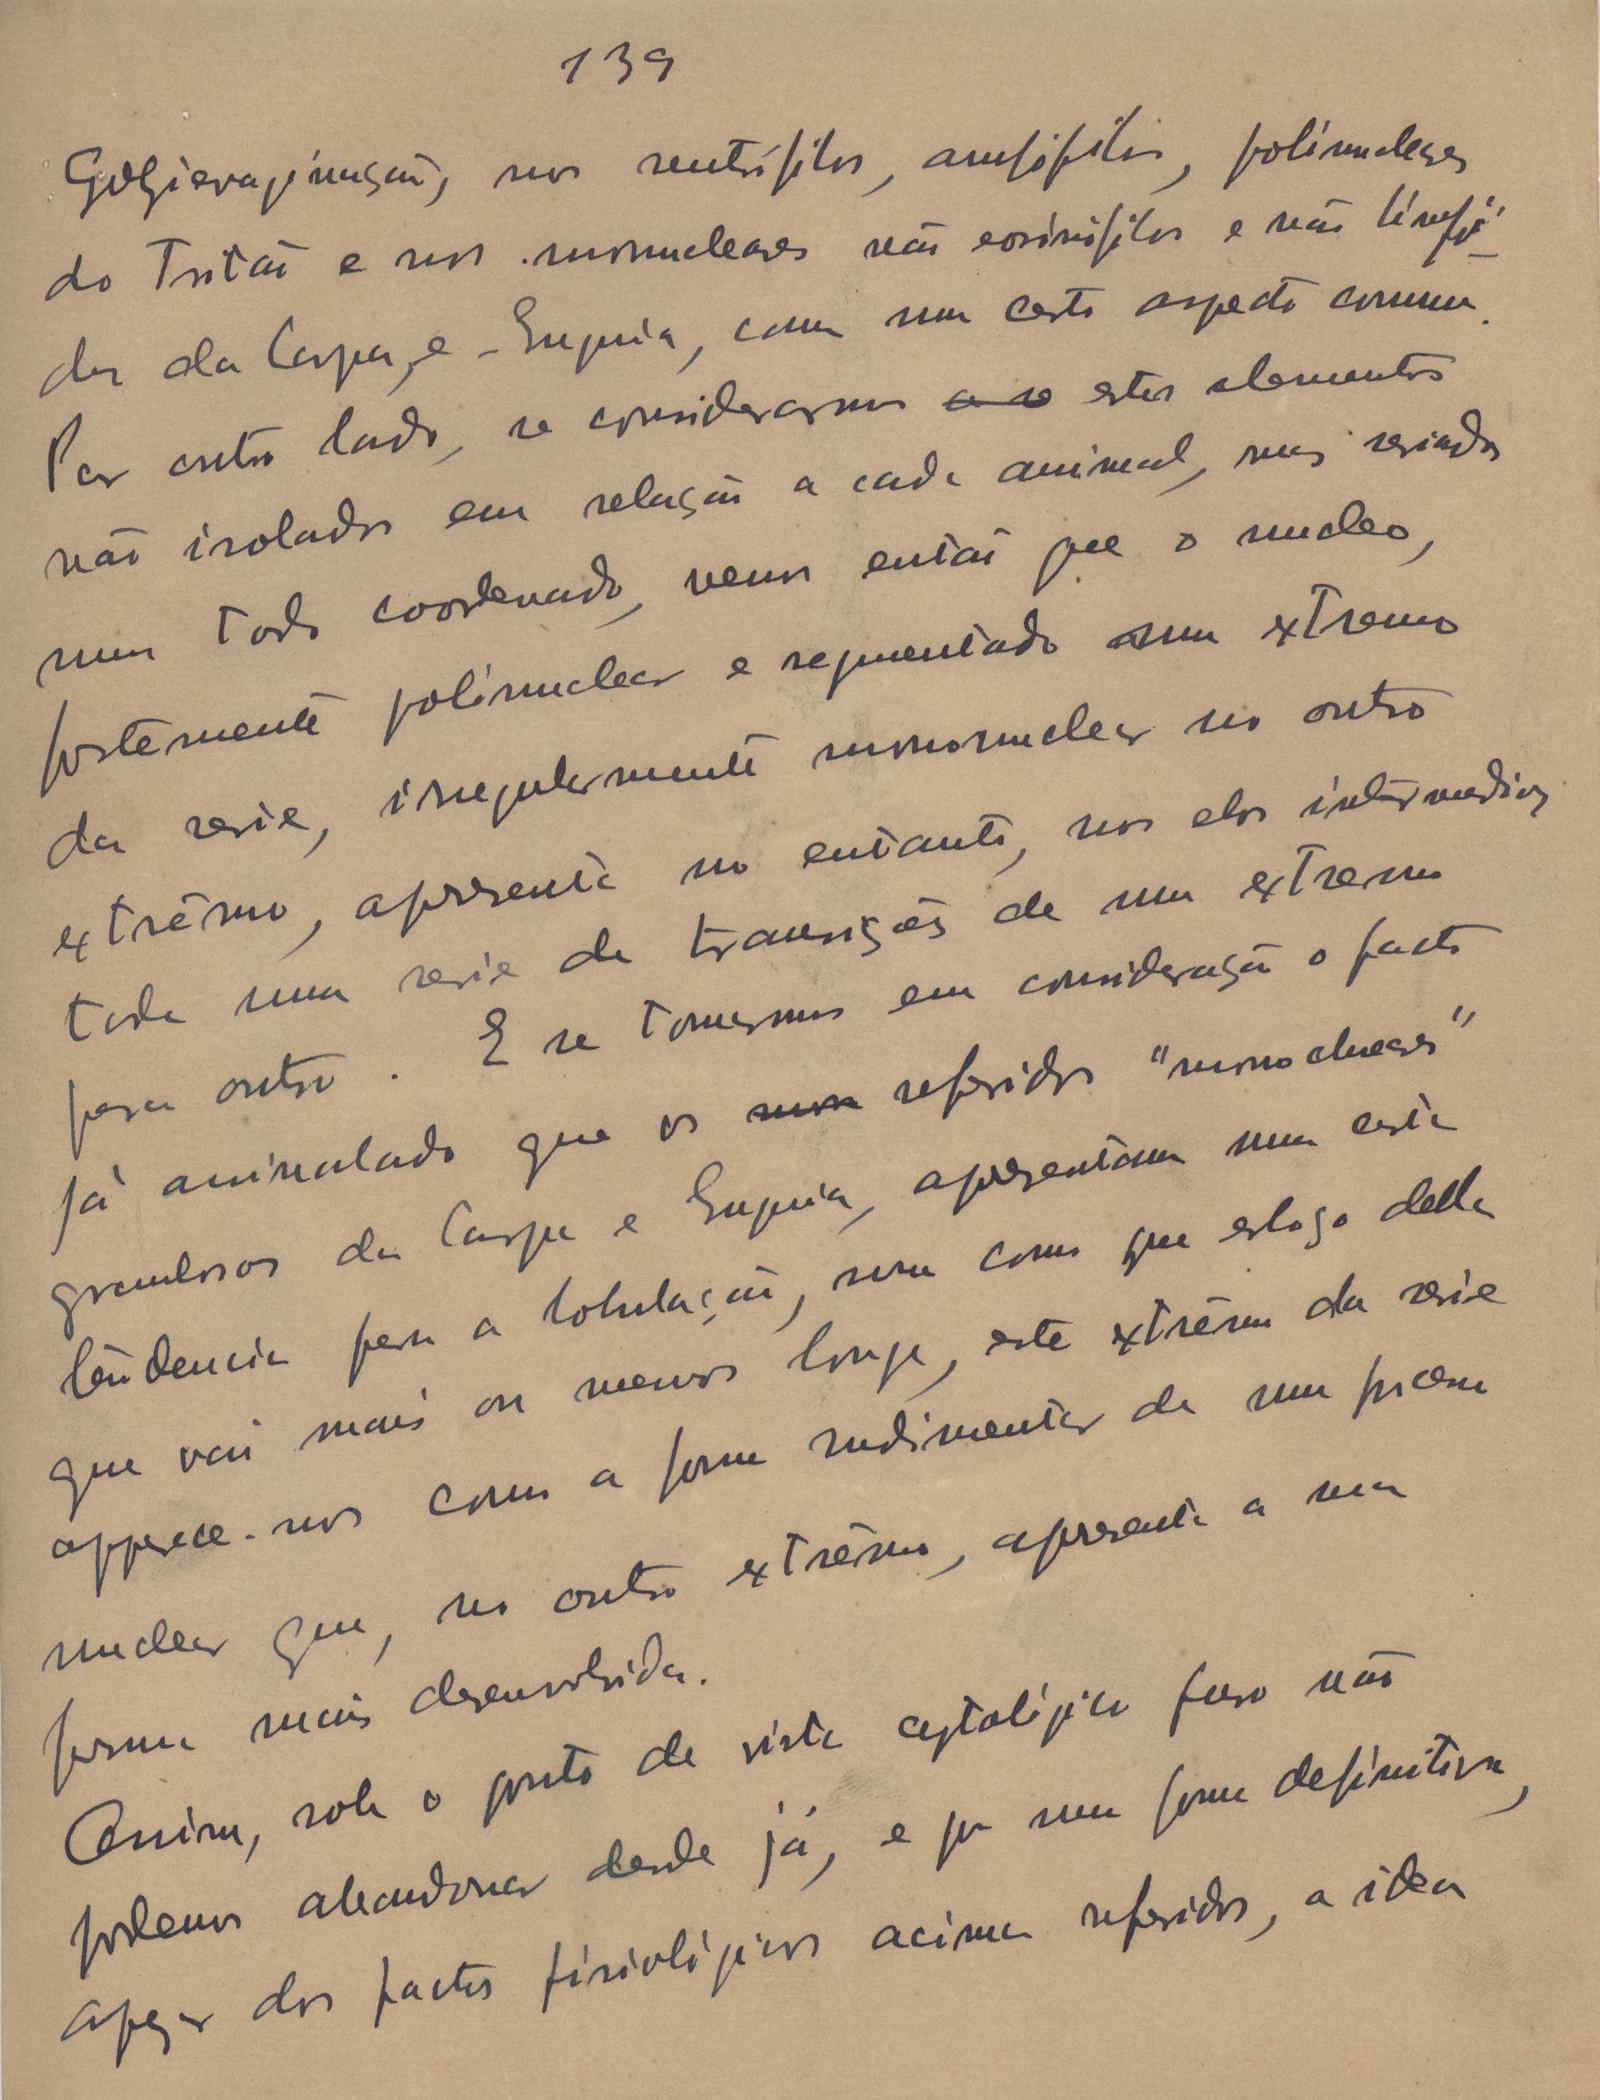 139
nos neutrófilos, anfófilos, polinucleares
do Tritão e nos mononucleares não eosinófilos e não linfoi-
des da Carpa, e Enguia, com um certo aspecto comum.
Por outro lado, se considerarmos estes elementos
não isolados em relação a cada animal, mas seriados
num todo coordenado, vemos então que o nucleo,
fortemente polinuclear e segmentado num extremo
da serie, irregularmente mononuclear no outro
extrêmo, apresenta no entanto, nos elos intermedios
toda uma serie de transições de um extremo
para outro. E se tomarmos em consideração o facto
já assinalado que os referidos "monoclueares"
granulosos da Carpa e Enguia, apresentam uma certa
tendencia para a lobulação, num como que esboço della
que vai mais ou menos longe, este extrêmo da serie
apparece-nos como a forma rudimentar de um processo
nuclear que, no outro extrêmo, apresenta a sua
forma mais desenvolvida.
Assim, sob o ponto de vista cytológico puro não
podemos abandonar desde já, e por uma forma definitiva,
apezar dos factos fisiológicos acima referidos, a idea